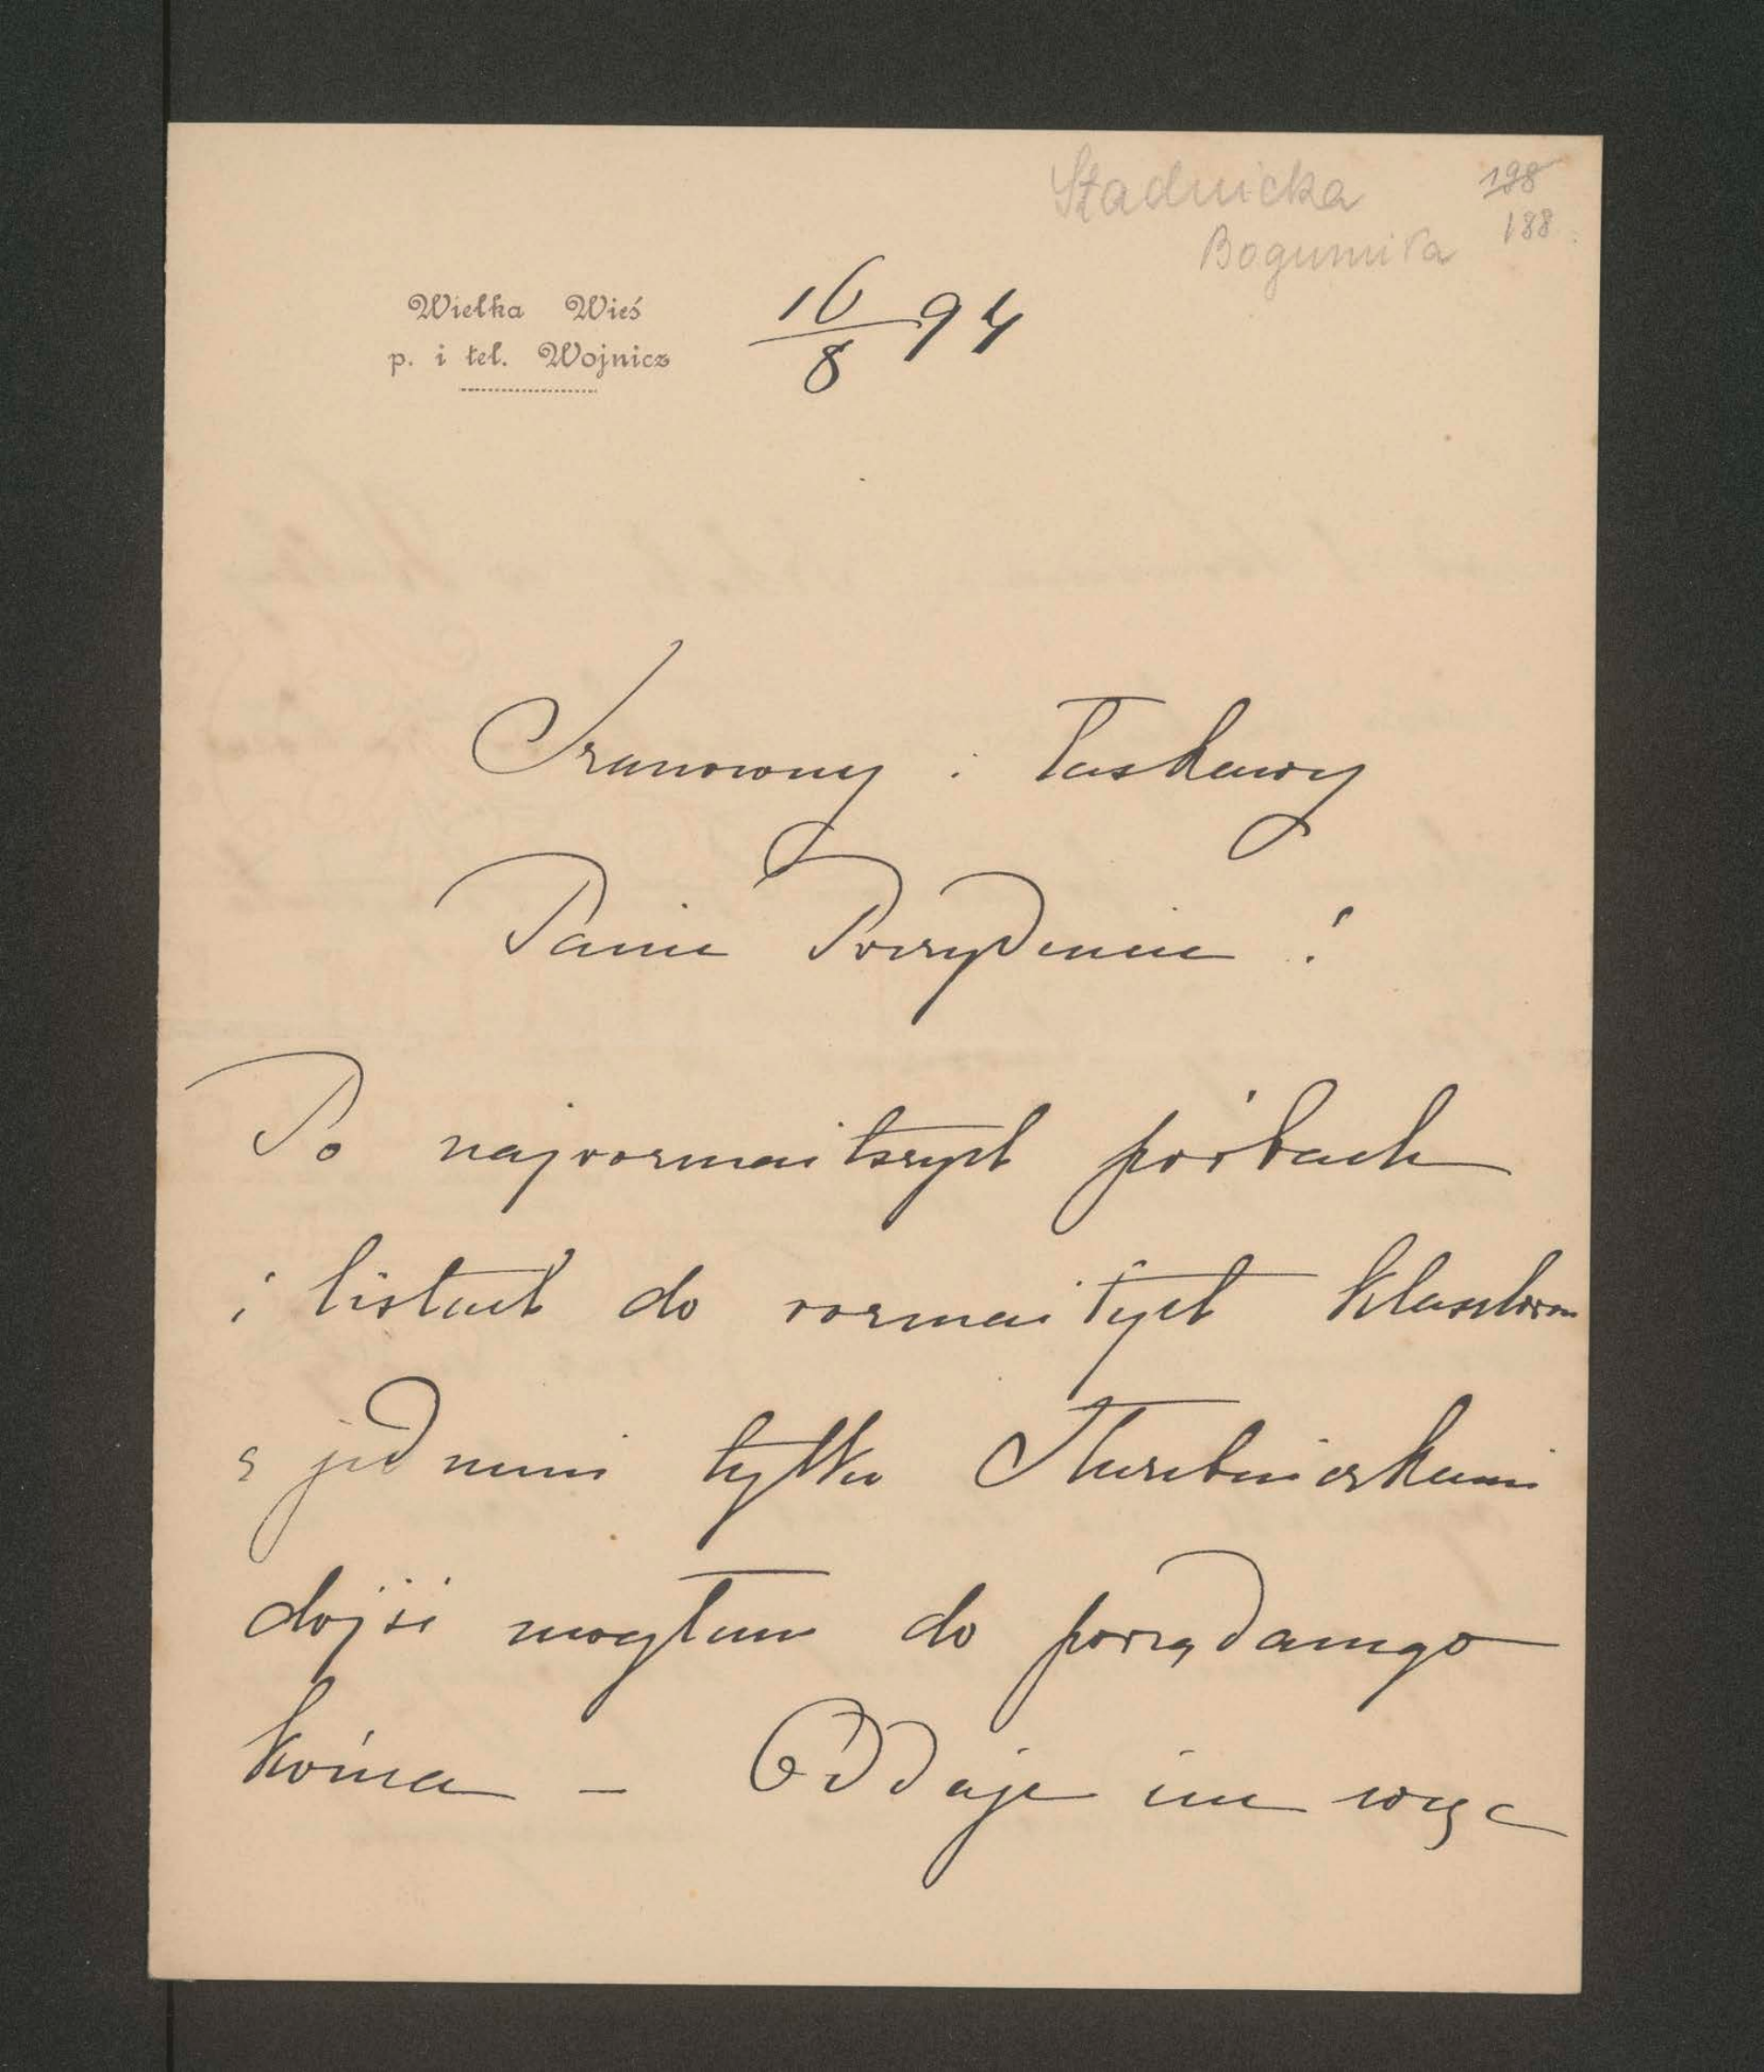 Stadnicka
Bogumiła
198
188
Wielka Wieś
p. i tel. Wojnicz
16/8 94
Szanowny i Łaskawy
Panie Prezydencie!
Po najrozmaitszych próbach
i listach do rozmaitych klasztorów
z jednemi tylko Służebniczkami
dojść mogłam do porządanego
końca – Oddaję im więc